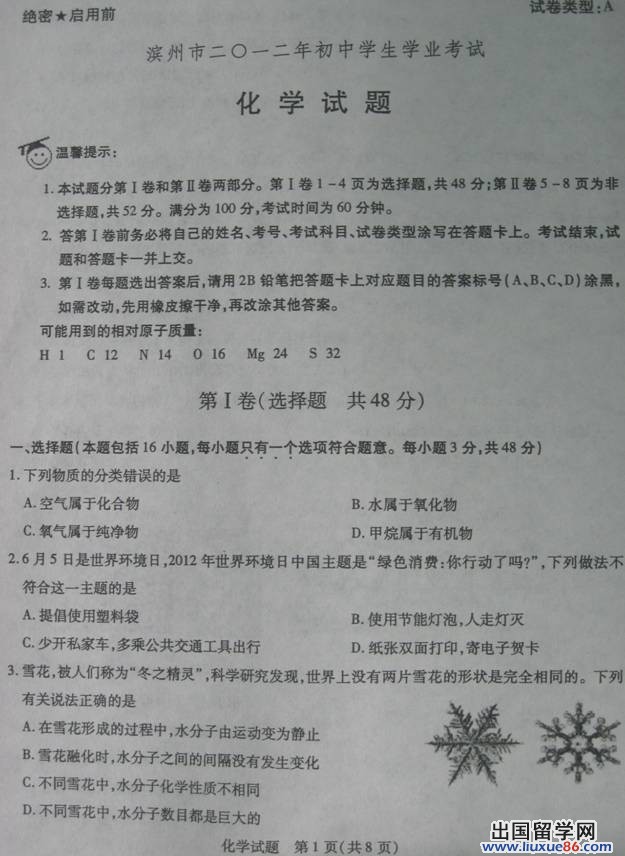 绝密★启用前
试卷类型:A
滨州市二〇一二年初中学生学业考试
化学试题
温馨提示:
1.本试题分第Ⅰ卷和第Ⅱ卷两部分。第Ⅰ卷1-4页为选择题,共48分;第Ⅱ卷5-8页为非
选择题,共52分。满分为100分,考试时间为60分钟。
2.答第Ⅰ卷前务必将自己的姓名、考号、考试科目、试卷类型涂写在答题卡上。考试结束,试
题和答题卡一并上交。
3.第Ⅰ卷每题选出答案后,请用2B铅笔把答题卡上对应题目的答案标号(A、B、C、D)涂黑,
如需改动,先用橡皮擦干净,再改涂其他答案。
可能用到的相对原子质量:
H 1 C 12 N 14 O 16 Mg 24 S 32
第Ⅰ卷(选择题 共48分)
一、选择题(本题包括16小题,每小题只有一个选项符合题意。每小题3分,共48分)
1.下列物质的分类错误的是
A.空气属于化合物 B.水属于氧化物
C.氧气属于纯净物 D.甲烷属于有机物
2.6月5日是世界环境日,2012年世界环境日中国主题是“绿色消费:你行动了吗?”,下列做法不
符合这一主题的是
A.提倡使用塑料袋 B.使用节能灯泡,人走灯灭
C.少开私家车,多乘公共交通工具出行 D.纸张双面打印,寄电子贺卡
3.雪花,被人们称为“冬之精灵”,科学研究发现,世界上没有两片雪花的形状是完全相同的。下列
有关说法正确的是
A.在雪花形成的过程中,水分子由运动变为静止
B.雪花融化时,水分子之间的间隔没有发生变化
C.不同雪花中,水分子化学性质不相同
D.不同雪花中,水分子数目都是巨大的
化学试题 第1页(共8页)
出国留学网
www.liuxue86.com